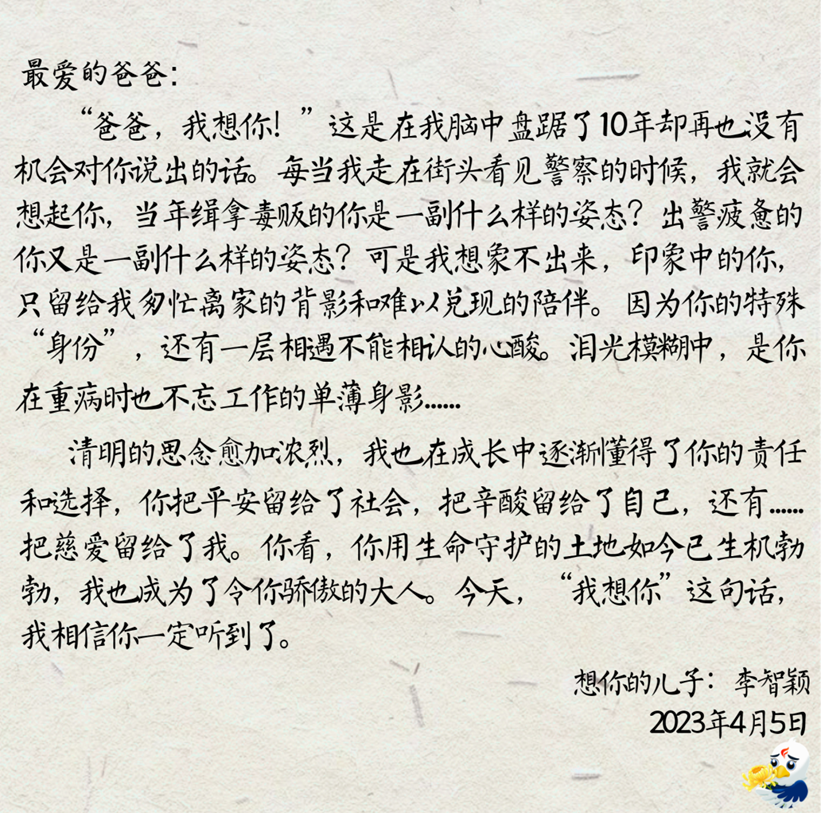 最爱的爸爸：
“爸爸，我想你！”这是在我脑中盘踞了10年却再也没有
机会对你说出的话。每当我走在街头看见警察的时候，我就会
想起你，当年缉拿毒贩的你是一副什么样的姿态？出警疲惫的
你又是一副什么样的姿态？可是我想象不出来，印象中的你，
只留给我匆忙离家的背影和难以兑现的陪伴。因为你的特殊
“身份”，还有一层相遇不能相认的心酸。泪光模糊中，是你
在重病时也不忘工作的单薄身影……
清明的思念愈加浓烈，我也在成长中逐渐懂得了你的责任
和选择，你把平安留给了社会，把辛酸留给了自己，还有……
把慈爱留给了我。你看，你用生命守护的土地如今已生机勃
勃，我也成为了令你骄傲的大人。今天，“我想你”这句话，
我相信你一定听到了。
想你的儿子：李智颖
2023年4月5日